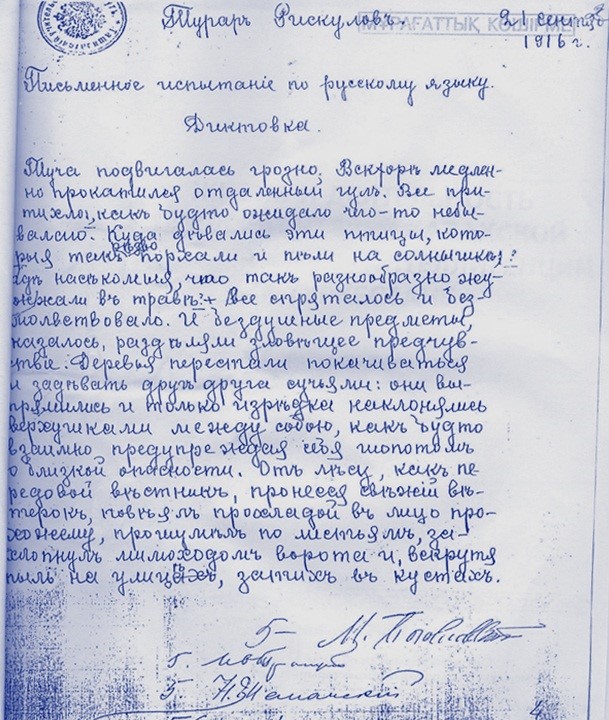 Тураръ Рискуловъ.
МҰРАҒАТТЫҚ КӨШІРМЕ
21 сентяб
1916 г.
Письменное испытаніе по русскому языку.
Диктовка.
Туча подвигалась грозно. Вскорѣ медлен-
но прокатился отдаленный гулъ. Все при-
тихло, какъ будто ожидало что-то небы-
валаго. Куда дѣвались эти птицы, кото-
рыя такъ рѣзво порхали и пѣли на солнышкѣ?
гдѣ насѣкомыя, что такъ разнообразно жу-
жжали въ травѣ? + Все спряталось и без-
молвствовало. И бездушные предметы,
казалось, раздѣляли зловѣщее предчув-
ствіе. Деревья перестали покачиваться
и задѣвать другъ друга сучьями: они вы-
прямились и только изрѣдка наклонялись
верхушками между собою, какъ будто
взаимно предупреждая себя шопотомъ
о близкой опасности. Отъ лѣсу, какъ пе-
редовой вѣстникъ, пронесся свѣжій вѣ-
терокъ, повѣялъ прохладой въ лицо про-
хожему, прошумѣлъ по листьямъ, за-
хлопнулъ мимоходомъ ворота и, вскрутя
пыль на улицахъ, затихъ въ кустахъ.
5-
5.
5